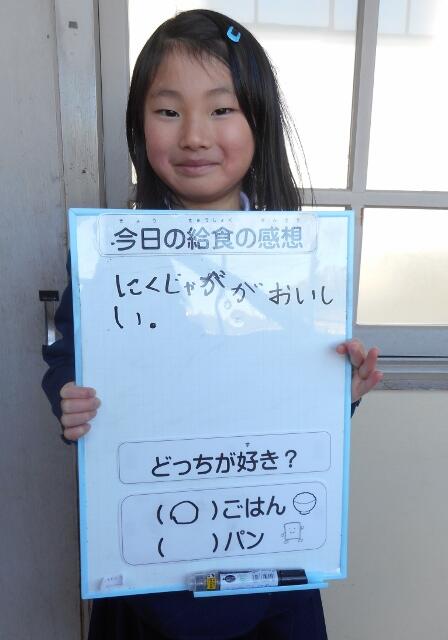 きょう きゅうしょく かんそう
今日の給食の感想
にくじゃががおいし
い。
す
どっちが好き？
(○)ごはん
( )パン